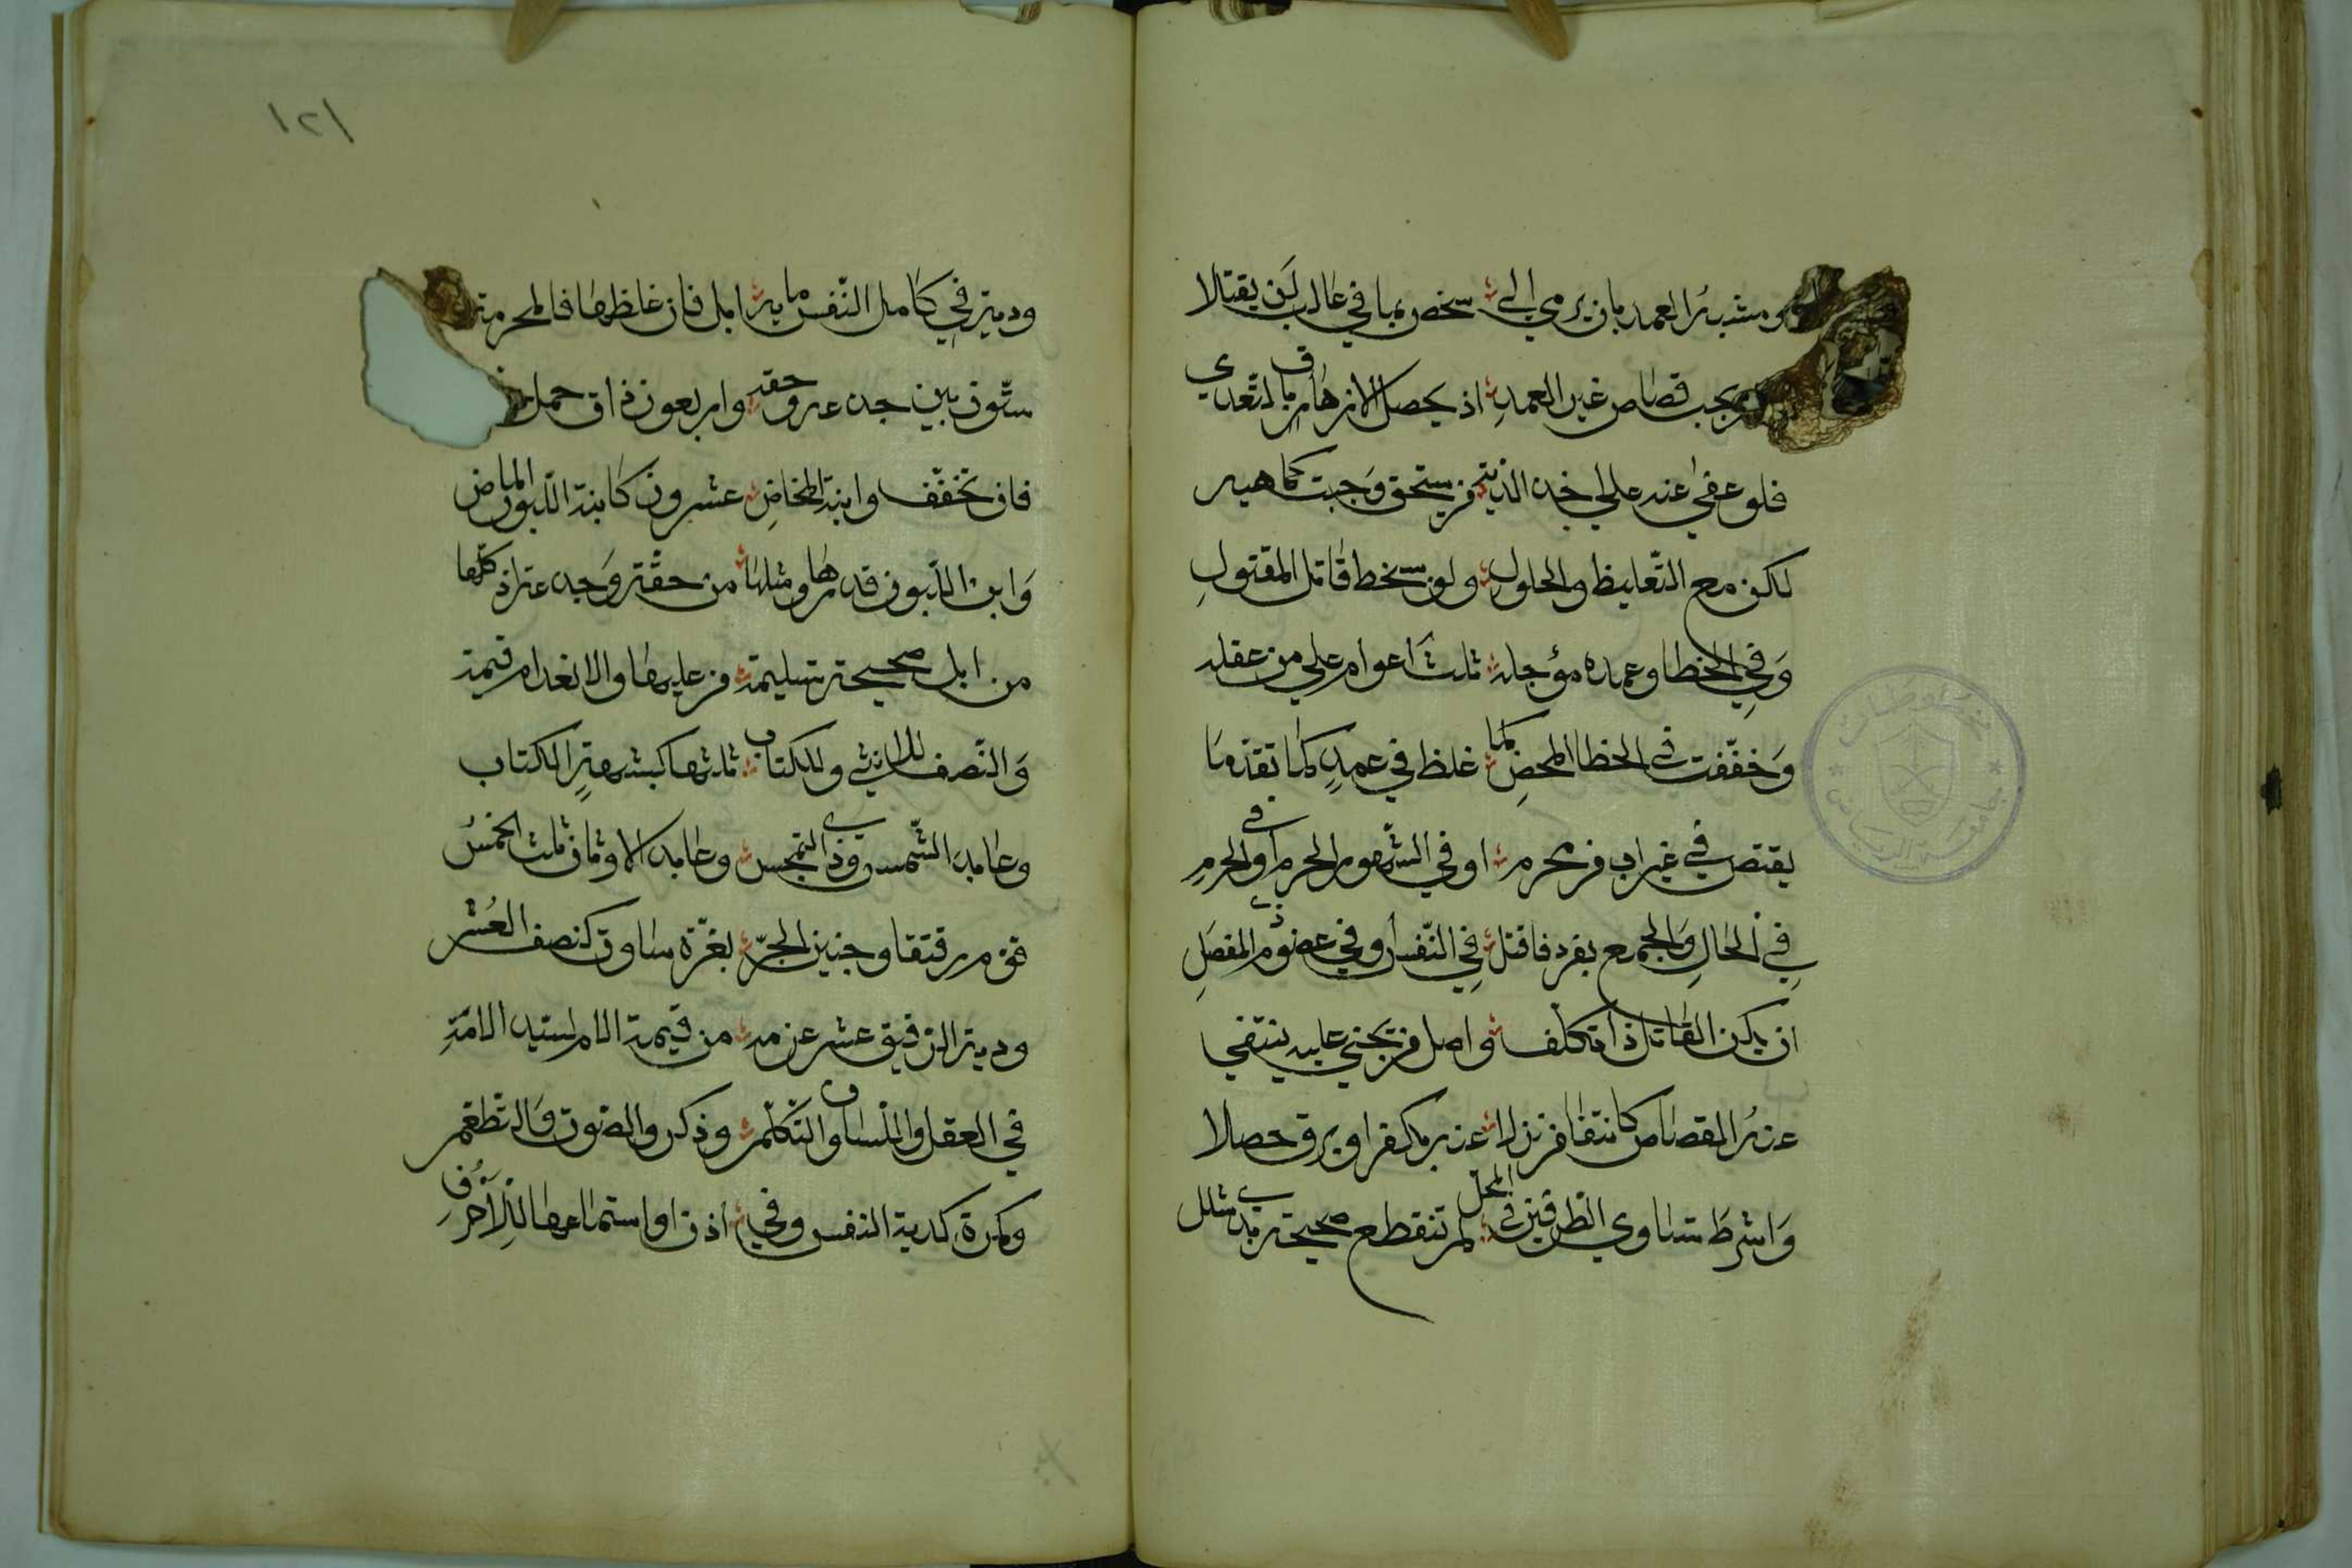 ومشبه العمد بان يرمي الي سخص بما في غالب لن يقتلا
يجب قصاص غير العمد اذ يحصل الازهاق بالتعدي
فلو عفي عنه علي اخذ الدية فز يستحق وجبت كما هيه
لكن مع التغليظ والحلول ولو سخط قاتل المقتول
وفي الخطا وعمده مؤجله ثلث اعوام علي من عقله
وخففت في الخطا المحض كما غلظ في عمد كما تقدما
يقتص في غير اب فز محرم او في الشهور الحرم او في الحرم
في الحال والجمع بفرد فاقتل في النفس او في عضو ذي المفصل
ان يكن القاتل ذا تكلف واصل فز يجني عليه ينتفي
عنه القصاص كانتفا فز نزلا عنه بكفر او برق حصلا
واشرط تساوي الطرفين في المحل لم تنقطع صحيحة بذي شلل
١٢١
ودية في كامل النفس ماية ابل فان غلظها فالمجزية
ستون بين جذعة وحقة واربعون ذات حمل
فان تخفف وابنة المخاض عشرون كابنة اللبون الماض
وابن اللبون قدرها ومثلها من حقة وجذعة اذ كلها
من ابل صحيحة سليمة فز عليها والانعدام قيمة
والنصف للانثي وللكتابي ثلثها كشبهة الكتاب
وعابد الشمس وذي التمجس وعابد الاوثان ثلث الخمس
قوم رقتقا وجنين الحر بغرة ساوت كنصف العشر
ودية الرقيق عشر عزمه من قيمة الام لسيد الامة
في العقل واللسان والتكلم وذكر والصوت والتطعم
وكمرة كدية النفس وفي اذن او استماعها للاحرف